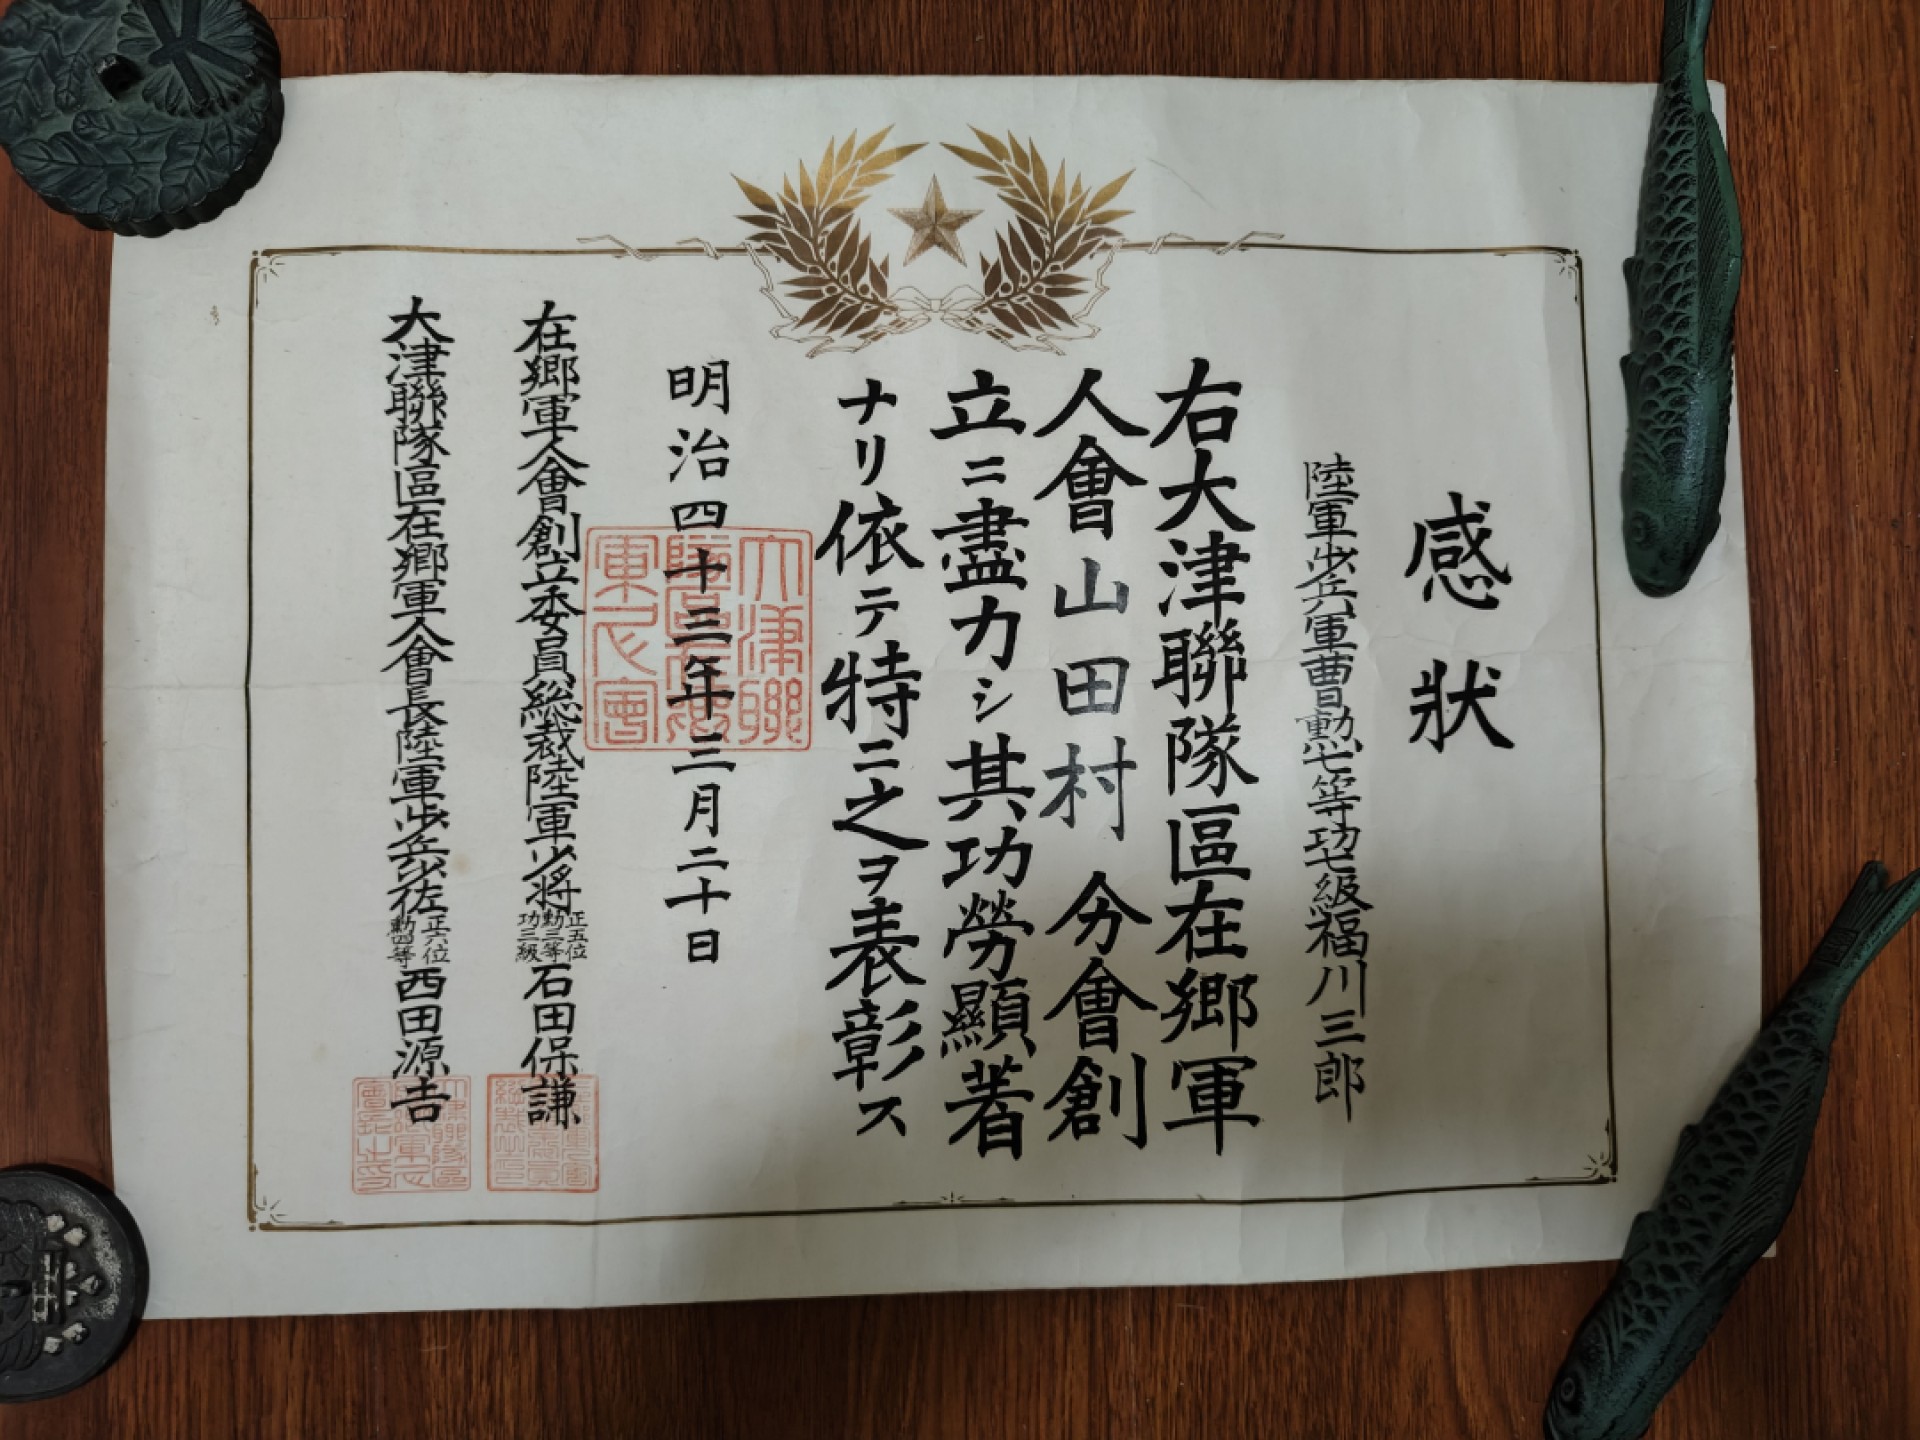 感狀
陸軍步兵軍曹勲七等功七級福川三郎
右大津聯隊區在郷軍
人會山田村分會創
立ニ盡力シ其功勞顯著
ナリ依テ特ニ之ヲ表彰ス
明治四十三年三月二十日
在郷軍人會創立委員総裁陸軍少將正五位勲三等功三級石田保謙
大津聯隊區在郷軍人會長陸軍步兵少佐正六位勲四等西田源吉
大津聯隊區在郷軍人會